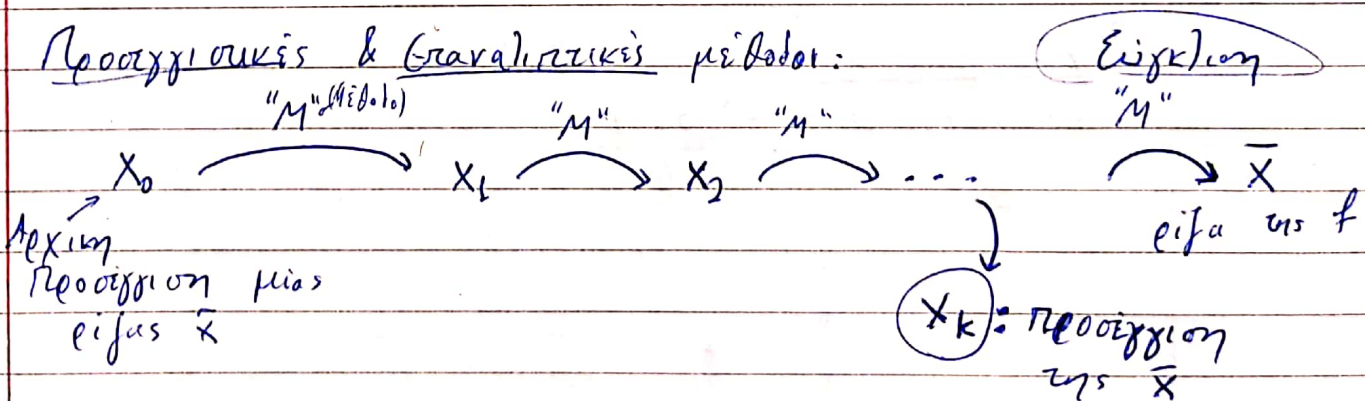 Προσεγγιστικές & Επαναλιπτικές μέθοδοι: Σύγκλιση
"Μ" (Μέθοδο) "Μ" "Μ" "Μ"
X₀ X₁ X₂ ... X̄
Αρχικη ρίζα της f
Προσέγγιση μίας
ρίζας x̄
Xₖ: προσέγγιση
της x̄